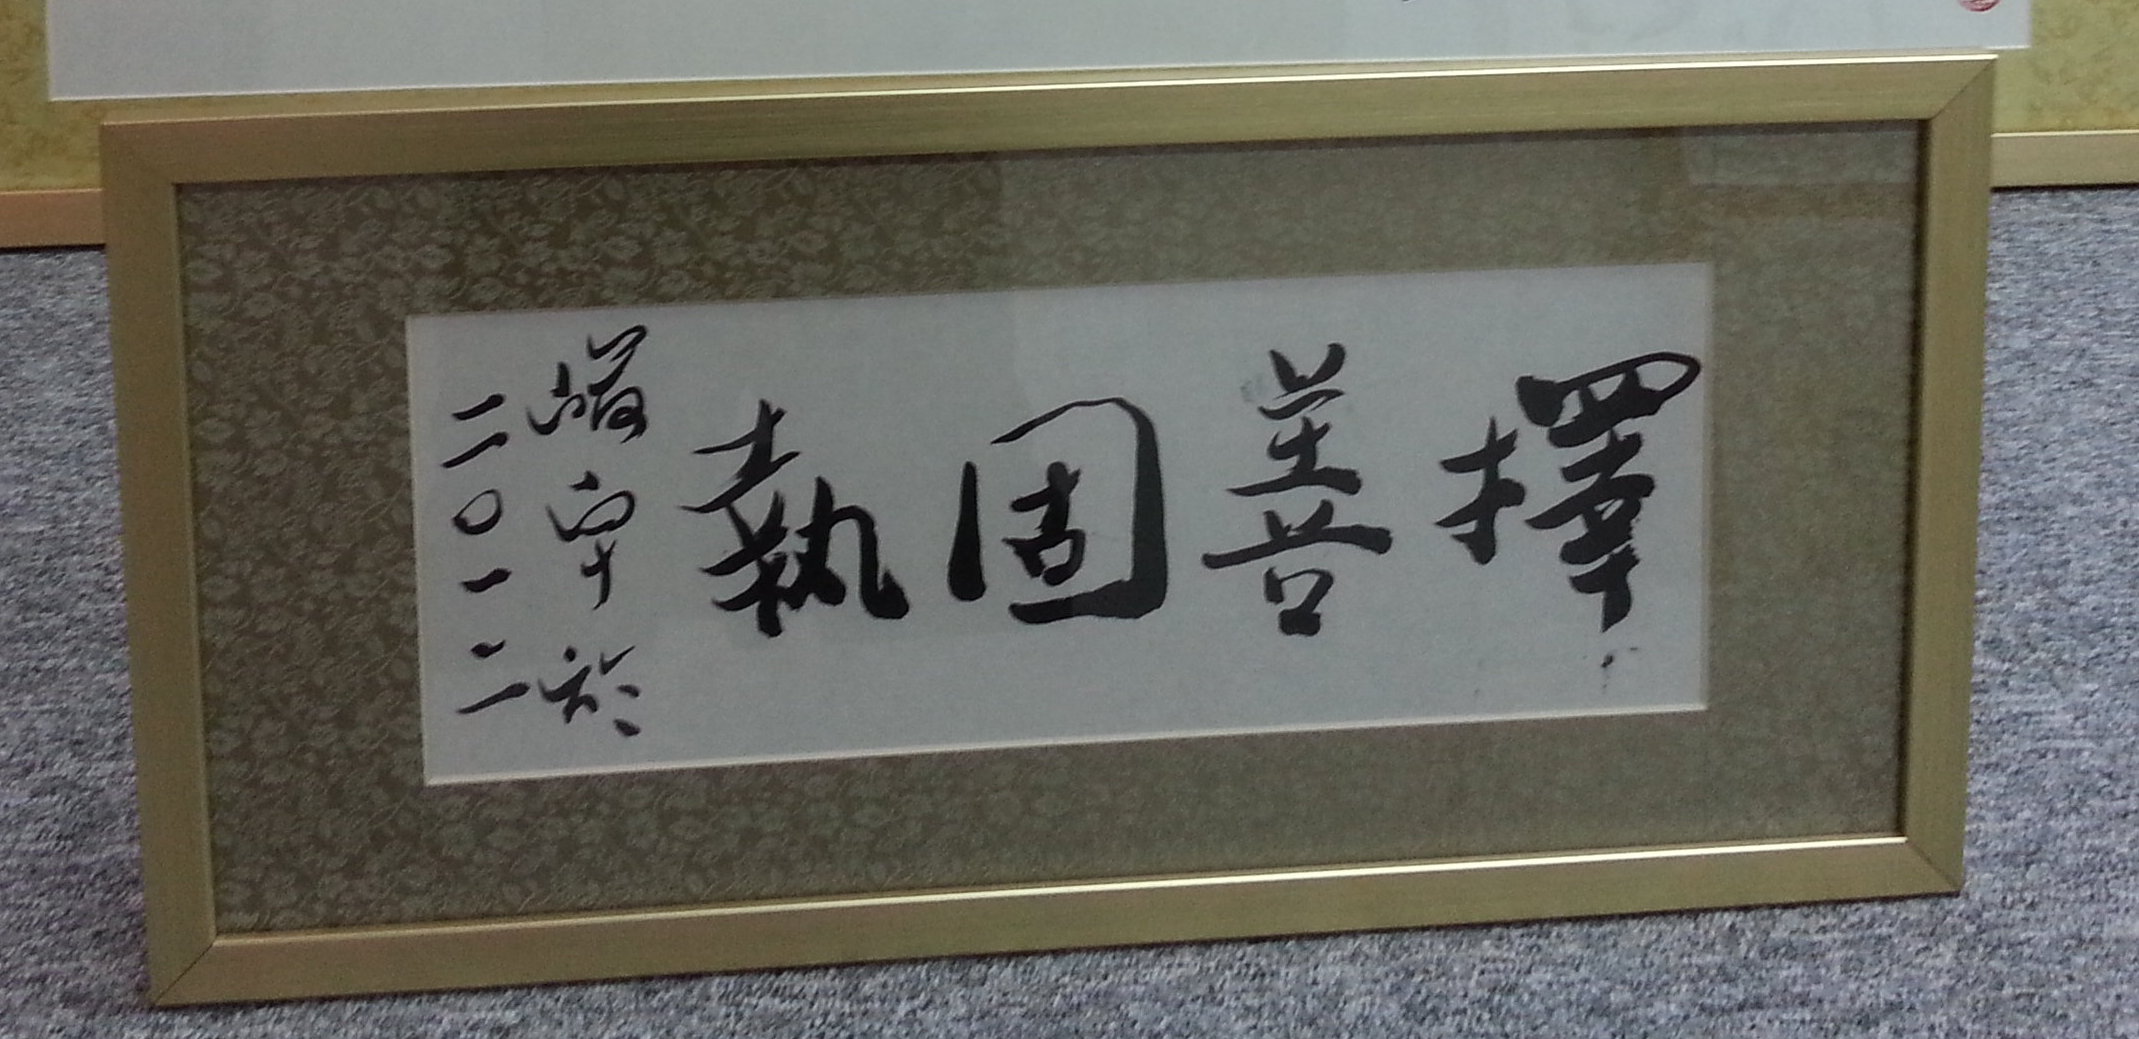 擇善固執
於
二〇一二